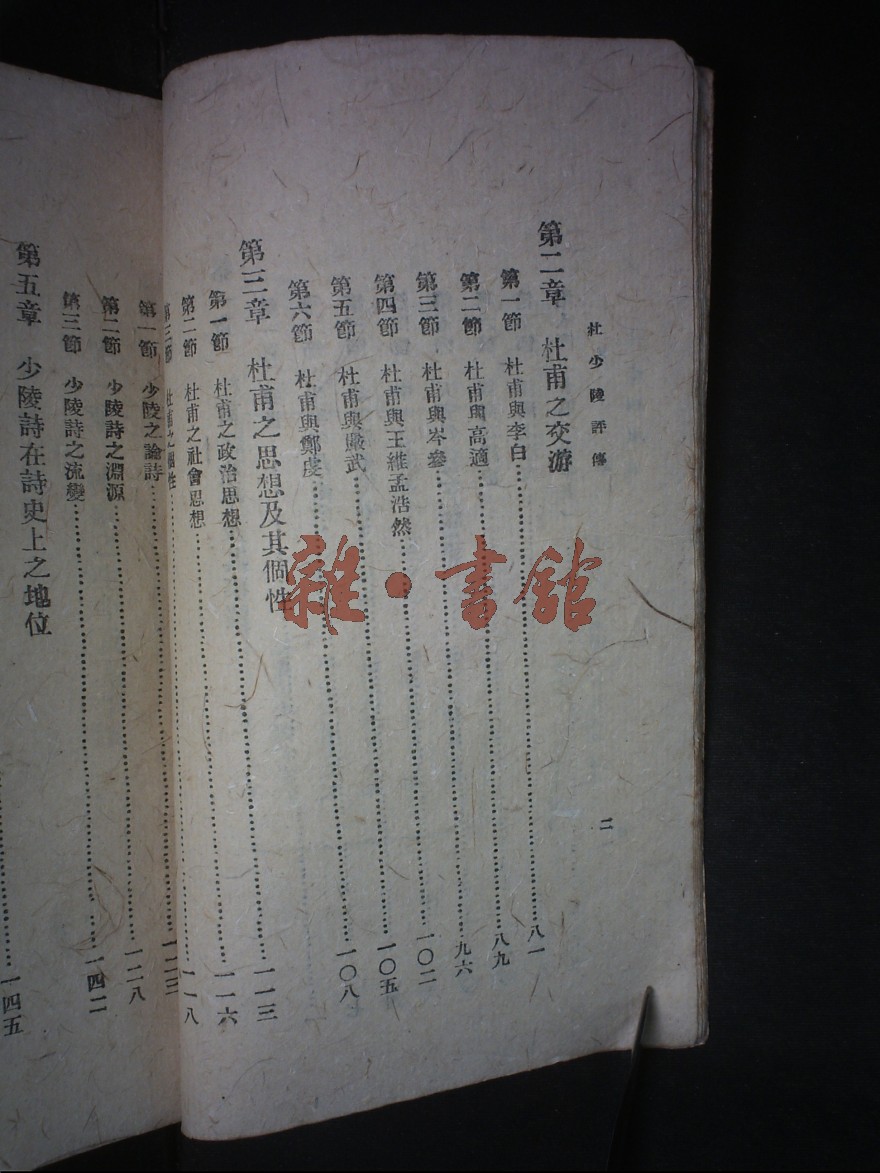 杜少陵評傳 二
第二章 杜甫之交游
第一節 杜甫與李白……八一
第二節 杜甫與高適……八九
第三節 杜甫與岑參……九六
第四節 杜甫與王維孟浩然……一〇二
第五節 杜甫與嚴武……一〇五
第六節 杜甫與鄭虔……一〇八
第三章 杜甫之思想及其個性
第一節 杜甫之政治思想……一一三
第二節 杜甫之社會思想……一一六
第三節 杜甫之個性……一一八
第一節 少陵之論詩……一二三
第二節 少陵詩之淵源……一二八
第三節 少陵詩之流變……一四二
第五章 少陵詩在詩史上之地位
……一四五
雜·書館